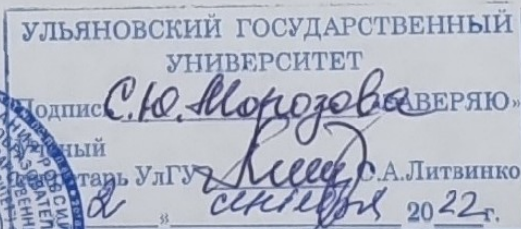 УЛЬЯНОВСКИЙ ГОСУДАРСТВЕННЫЙ
УНИВЕРСИТЕТ
Подпись С.Ю. Морозова ЗАВЕРЯЮ»
Ученый
секретарь УлГУ О.А.Литвинко
2 » сентября 2022г.